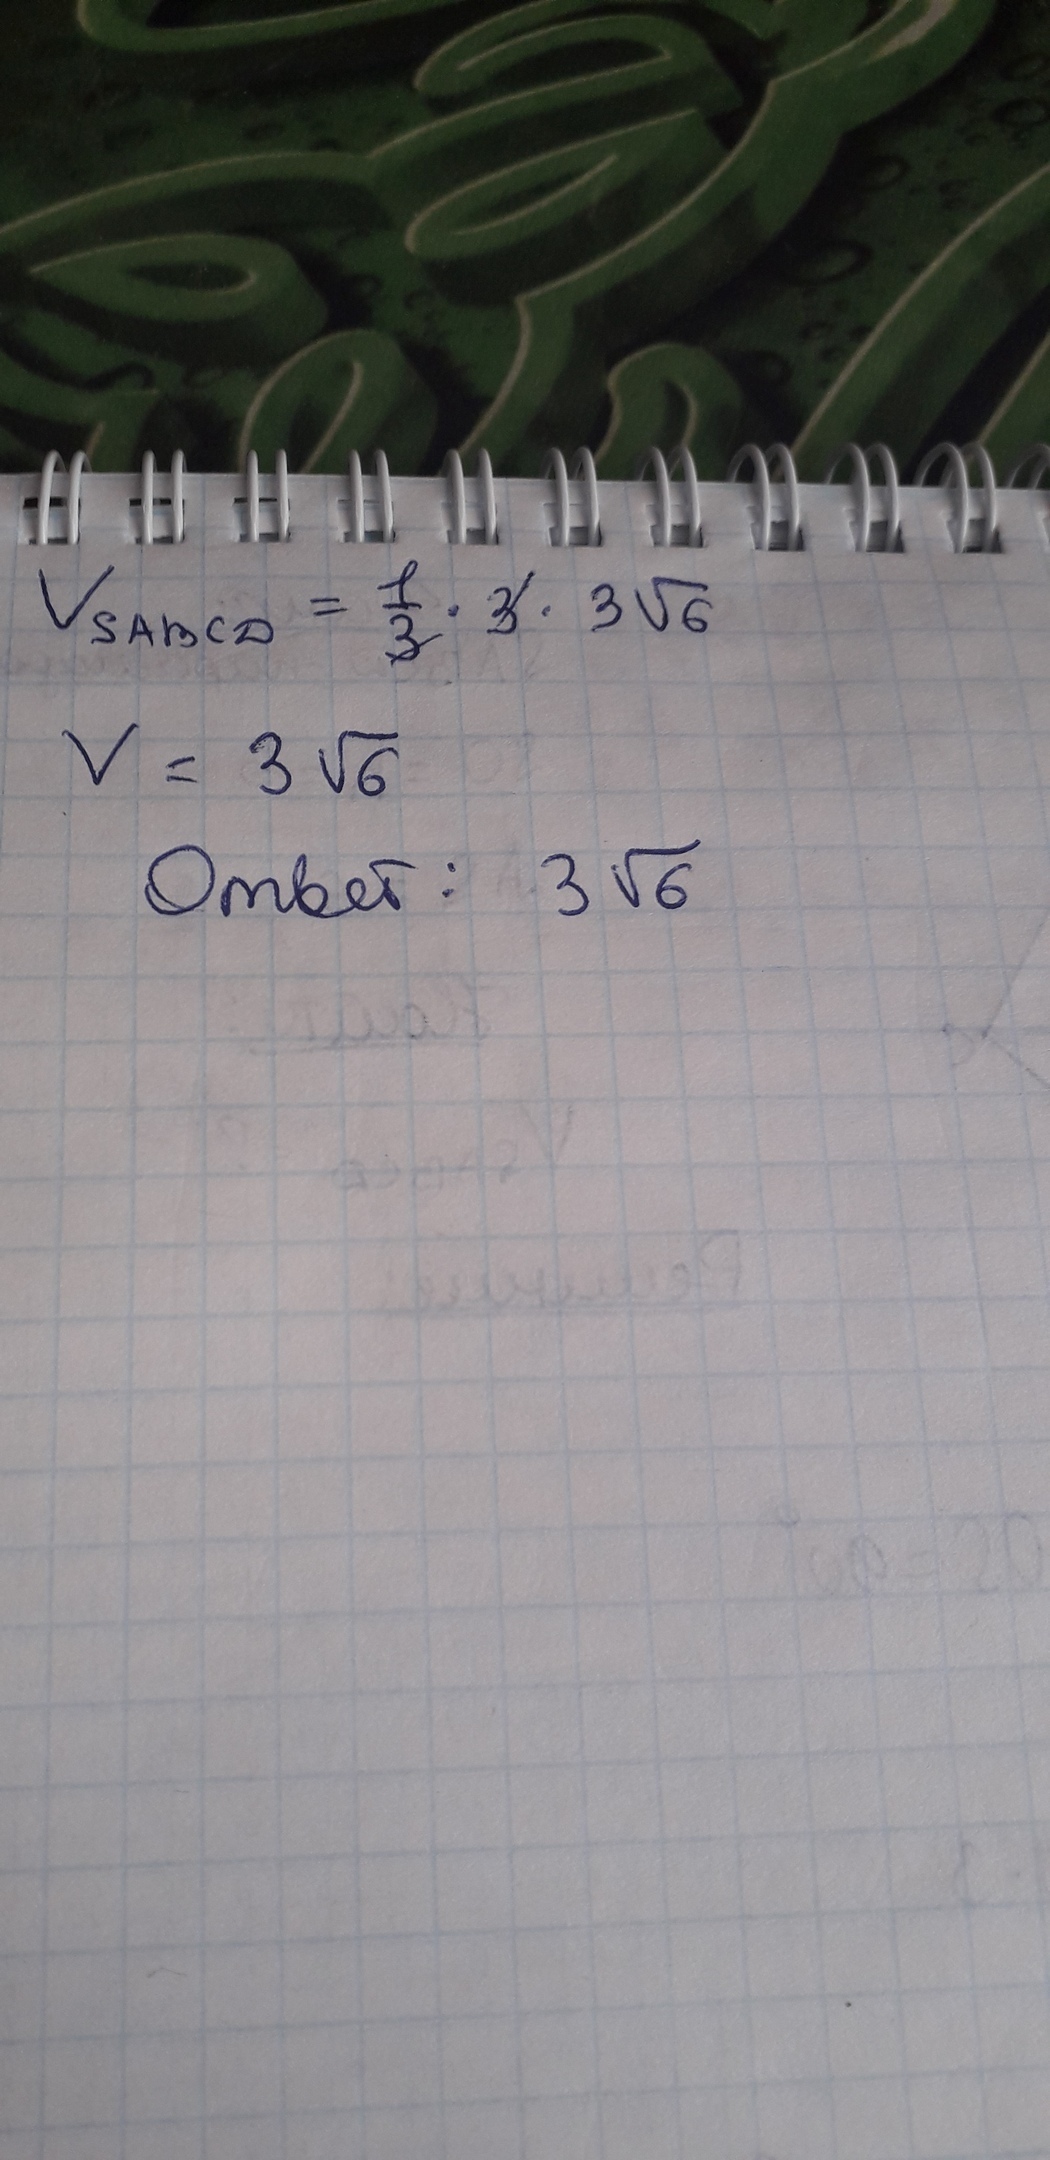 V SABCD = 1/3 · 3 · 3√6
V = 3√6
Ответ: 3√6